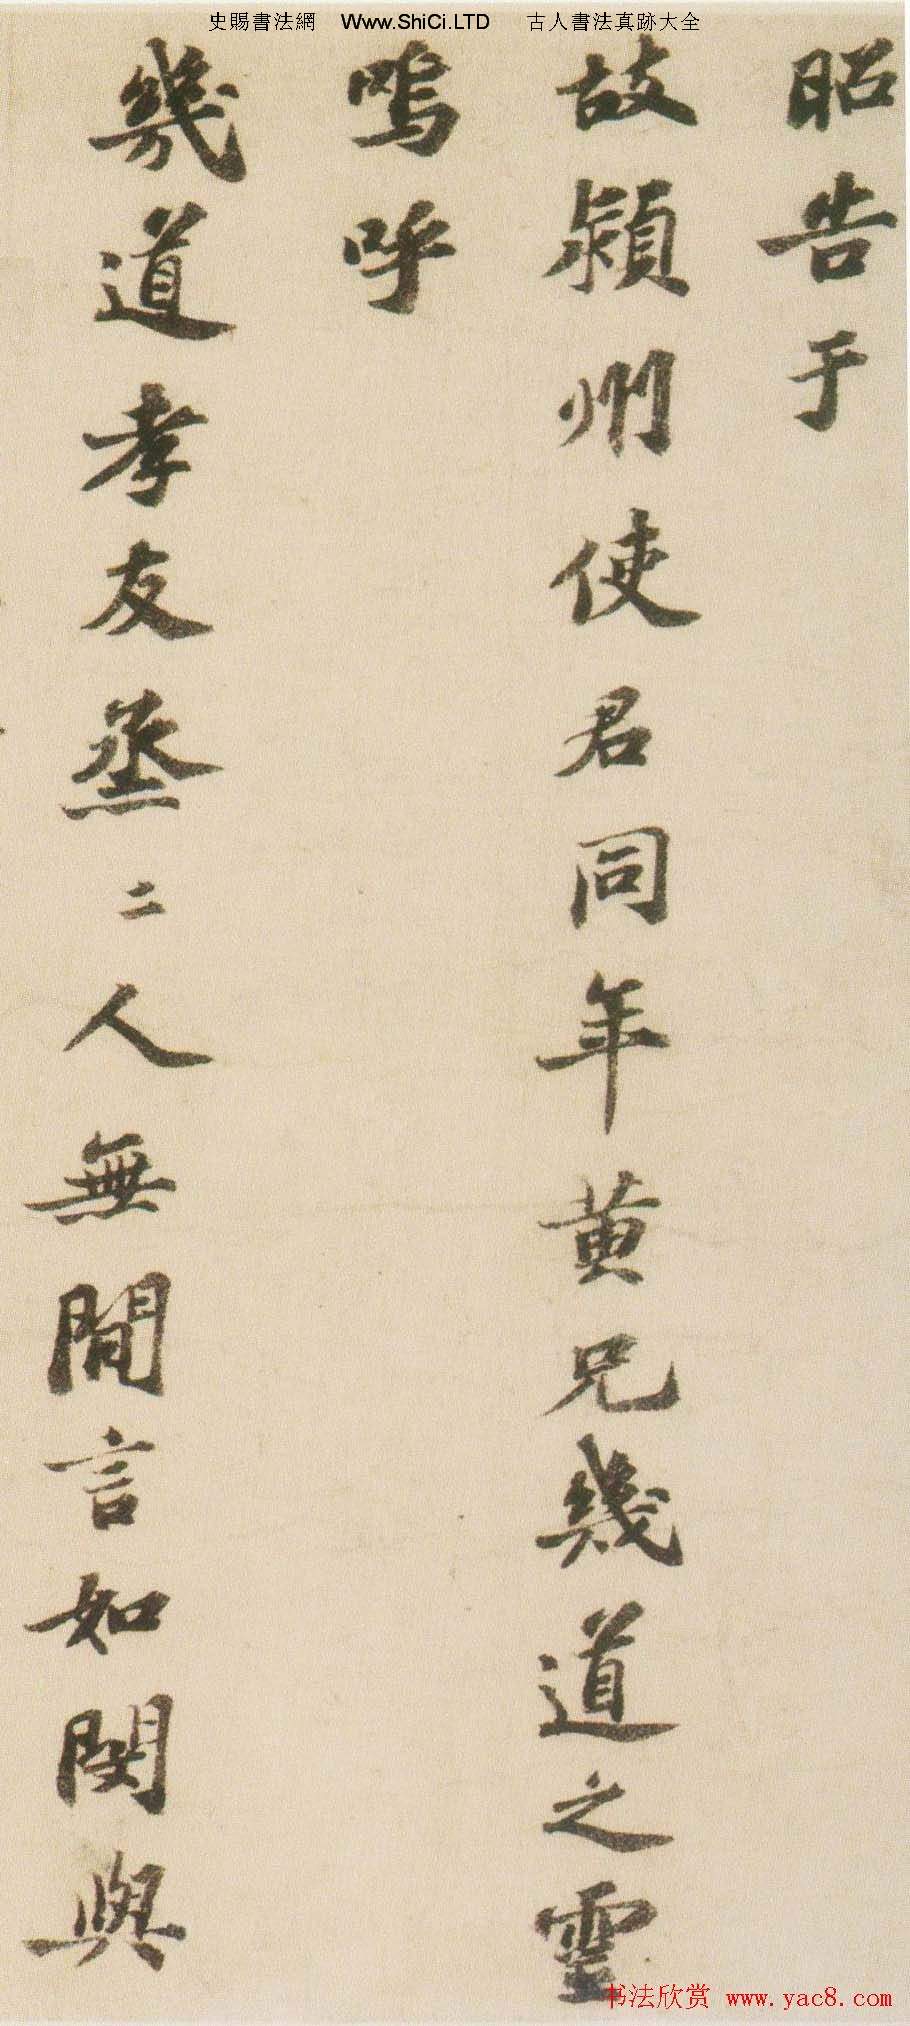 史賜書法網 Www.ShiCi.LTD 古人書法真跡大全
昭告于
故潁州使君同年黄兄幾道之靈
嗚呼
幾道孝友烝二人無間言如閔與
书法欣赏 www.yac8.com